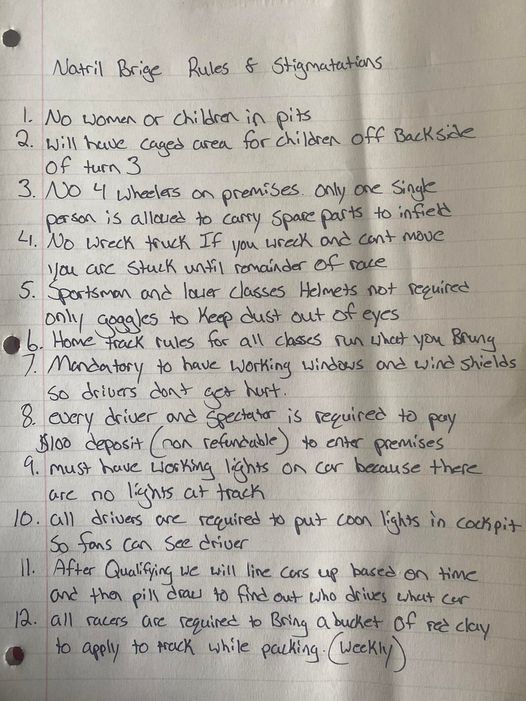 Natril Brige Rules & Stigmatations
1. No women or children in pits
2. will have caged area for children off Backside
of turn 3
3. No 4 wheelers on premises. only one single
person is allowed to carry spare parts to infield
4. No wreck truck If you wreck and cant move
you are stuck until remainder of race
5. Sportsman and lower classes Helmets not required
only goggles to keep dust out of eyes
6. Home track rules for all classes run what you Brung
7. Mandatory to have working windows and wind shields
so drivers dont get hurt.
8. every driver and spectator is required to pay
$100 deposit (non refundable) to enter premises
9. must have working lights on car because there
are no lights at track
10. all drivers are required to put coon lights in cockpit
so fans can see driver
11. After Qualifying we will line cars up based on time
and then pill draw to find out who drives what car
12. all racers are required to Bring a bucket of red clay
to apply to track while packing. (weekly)